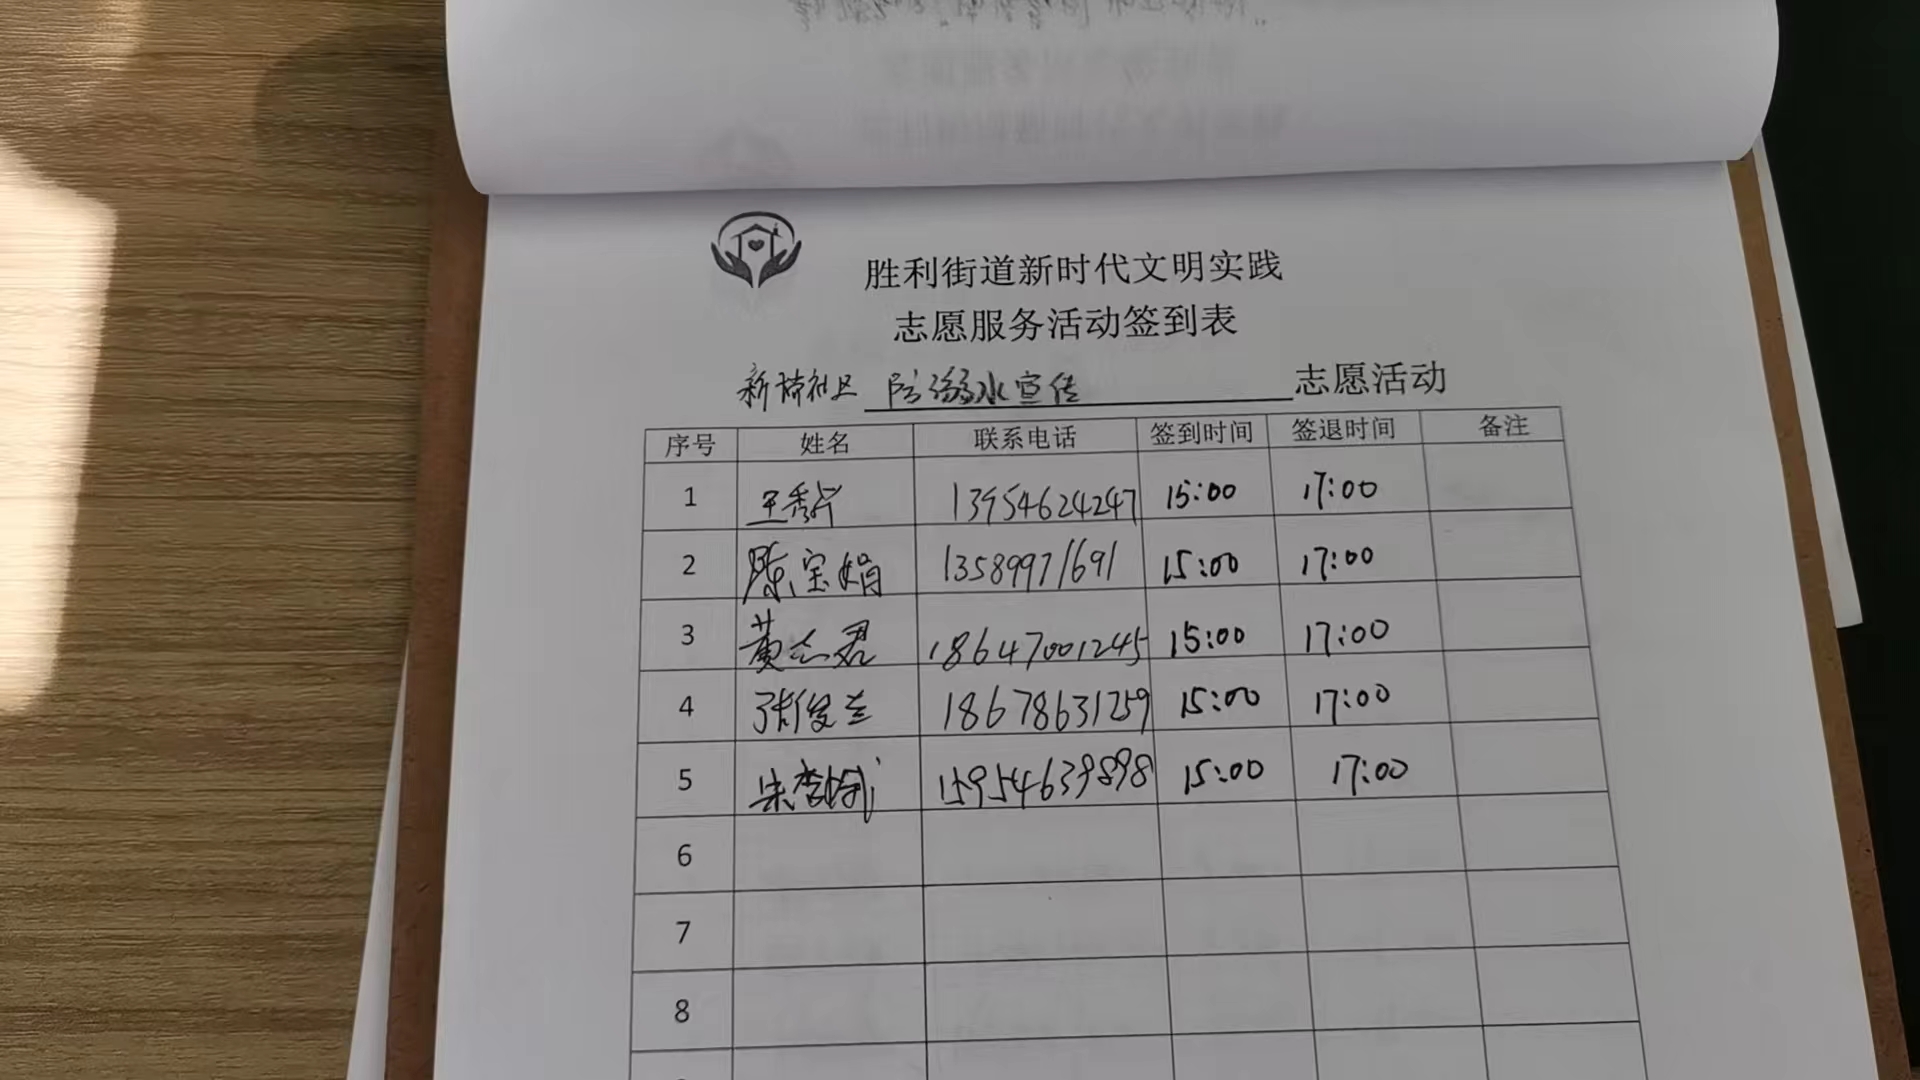 胜利街道新时代文明实践
志愿服务活动签到表
新 社区 防溺水宣传 志愿活动
序号 姓名 联系电话 签到时间 签退时间 备注
1 王秀 13954624247 15:00 17:00
2 陈宝娟 13589971691 15:00 17:00
3 黄志君 18647001245 15:00 17:00
4 张俊兰 18678631259 15:00 17:00
5 15954639898 15:00 17:00
6
7
8